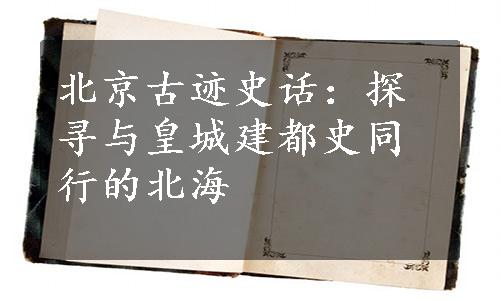 北京古迹史话：探
寻与皇城建都史同
行的北海